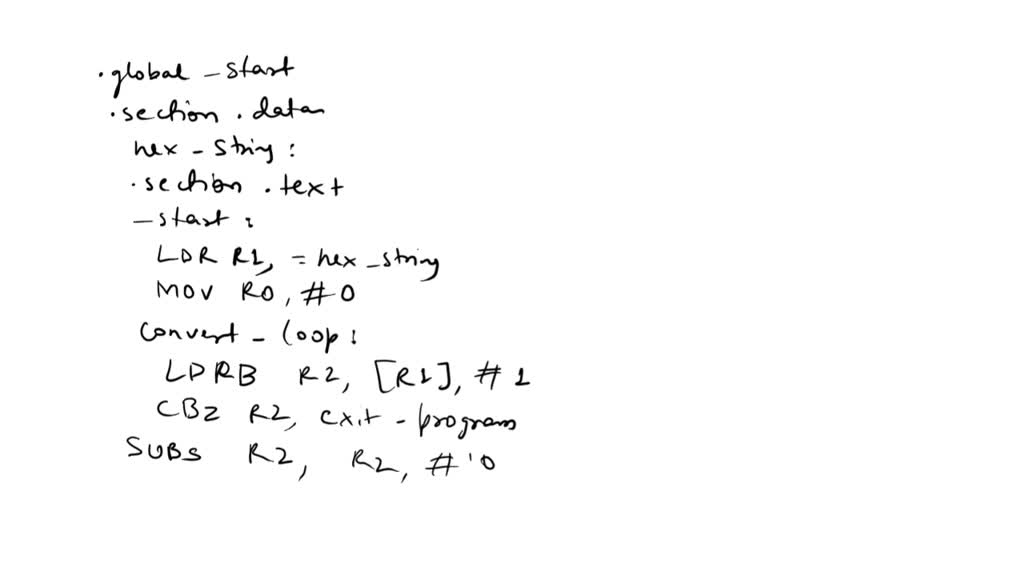 .global _start
.section .data
hex_string:
.section .text
_start:
LDR R1, =hex_string
MOV R0, #0
convert_loop:
LDRB R2, [R1], #1
CBZ R2, exit_program
SUBS R2, R2, #'0